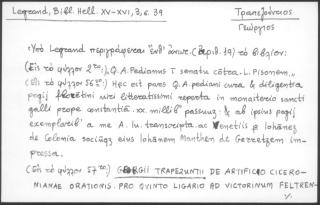 Legrand, Bibl. Hell. XV-XVI, 3, σ. 39
Τραπεζούντιος
Γεώργιος
Ὑπὸ Legrand περιγράφεται ἔνθ' ἀνωτ. (ἀριθ. 19) τὸ βιβλίον:
(Εἰς τὸ φύλλον 2ʳᵒ:), Q. A. Pedianus T senatu cōtra. L. Pisonem,,
(Εἰς τὸ φύλλον 56ʳᵒ:) Hęc est pars Q. A. pediani cura & diligentia
pogij florētini uiri litteratissimi reperta in monasterio sancti
galli prope constantiā. xx. milli passuuȝ: & ab ipsius pogij
exemplarib' a me A. lu. transcripta. ac Venetiis p iohāneȝ
de Colonia sociūqȝ eius Iohānem Manthen de Gerretzem im-
pressa.
(Εἰς τὸ φύλλον 57ʳᵒ:) GEORGII TRAPEZUNTII DE ARTIFICIO CICERO-
NIANAE ORATIONIS. PRO QVINTO LIGARIO AD VICTORINUM FELTREN-
./.